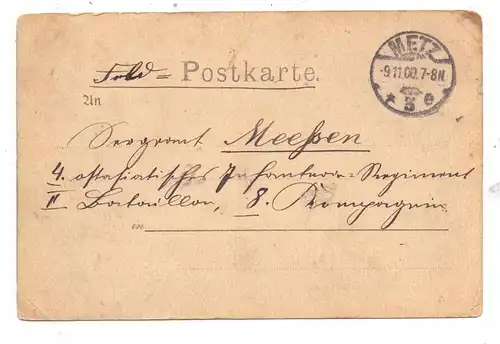 METZ
-9.11.00.7-8N.
* 3 e
Feld = Postkarte.
An
Sergeant Meeßen
4. ostasiatisches Infanterie-Regiment
II Bataillon, 8. Kompagnie
in